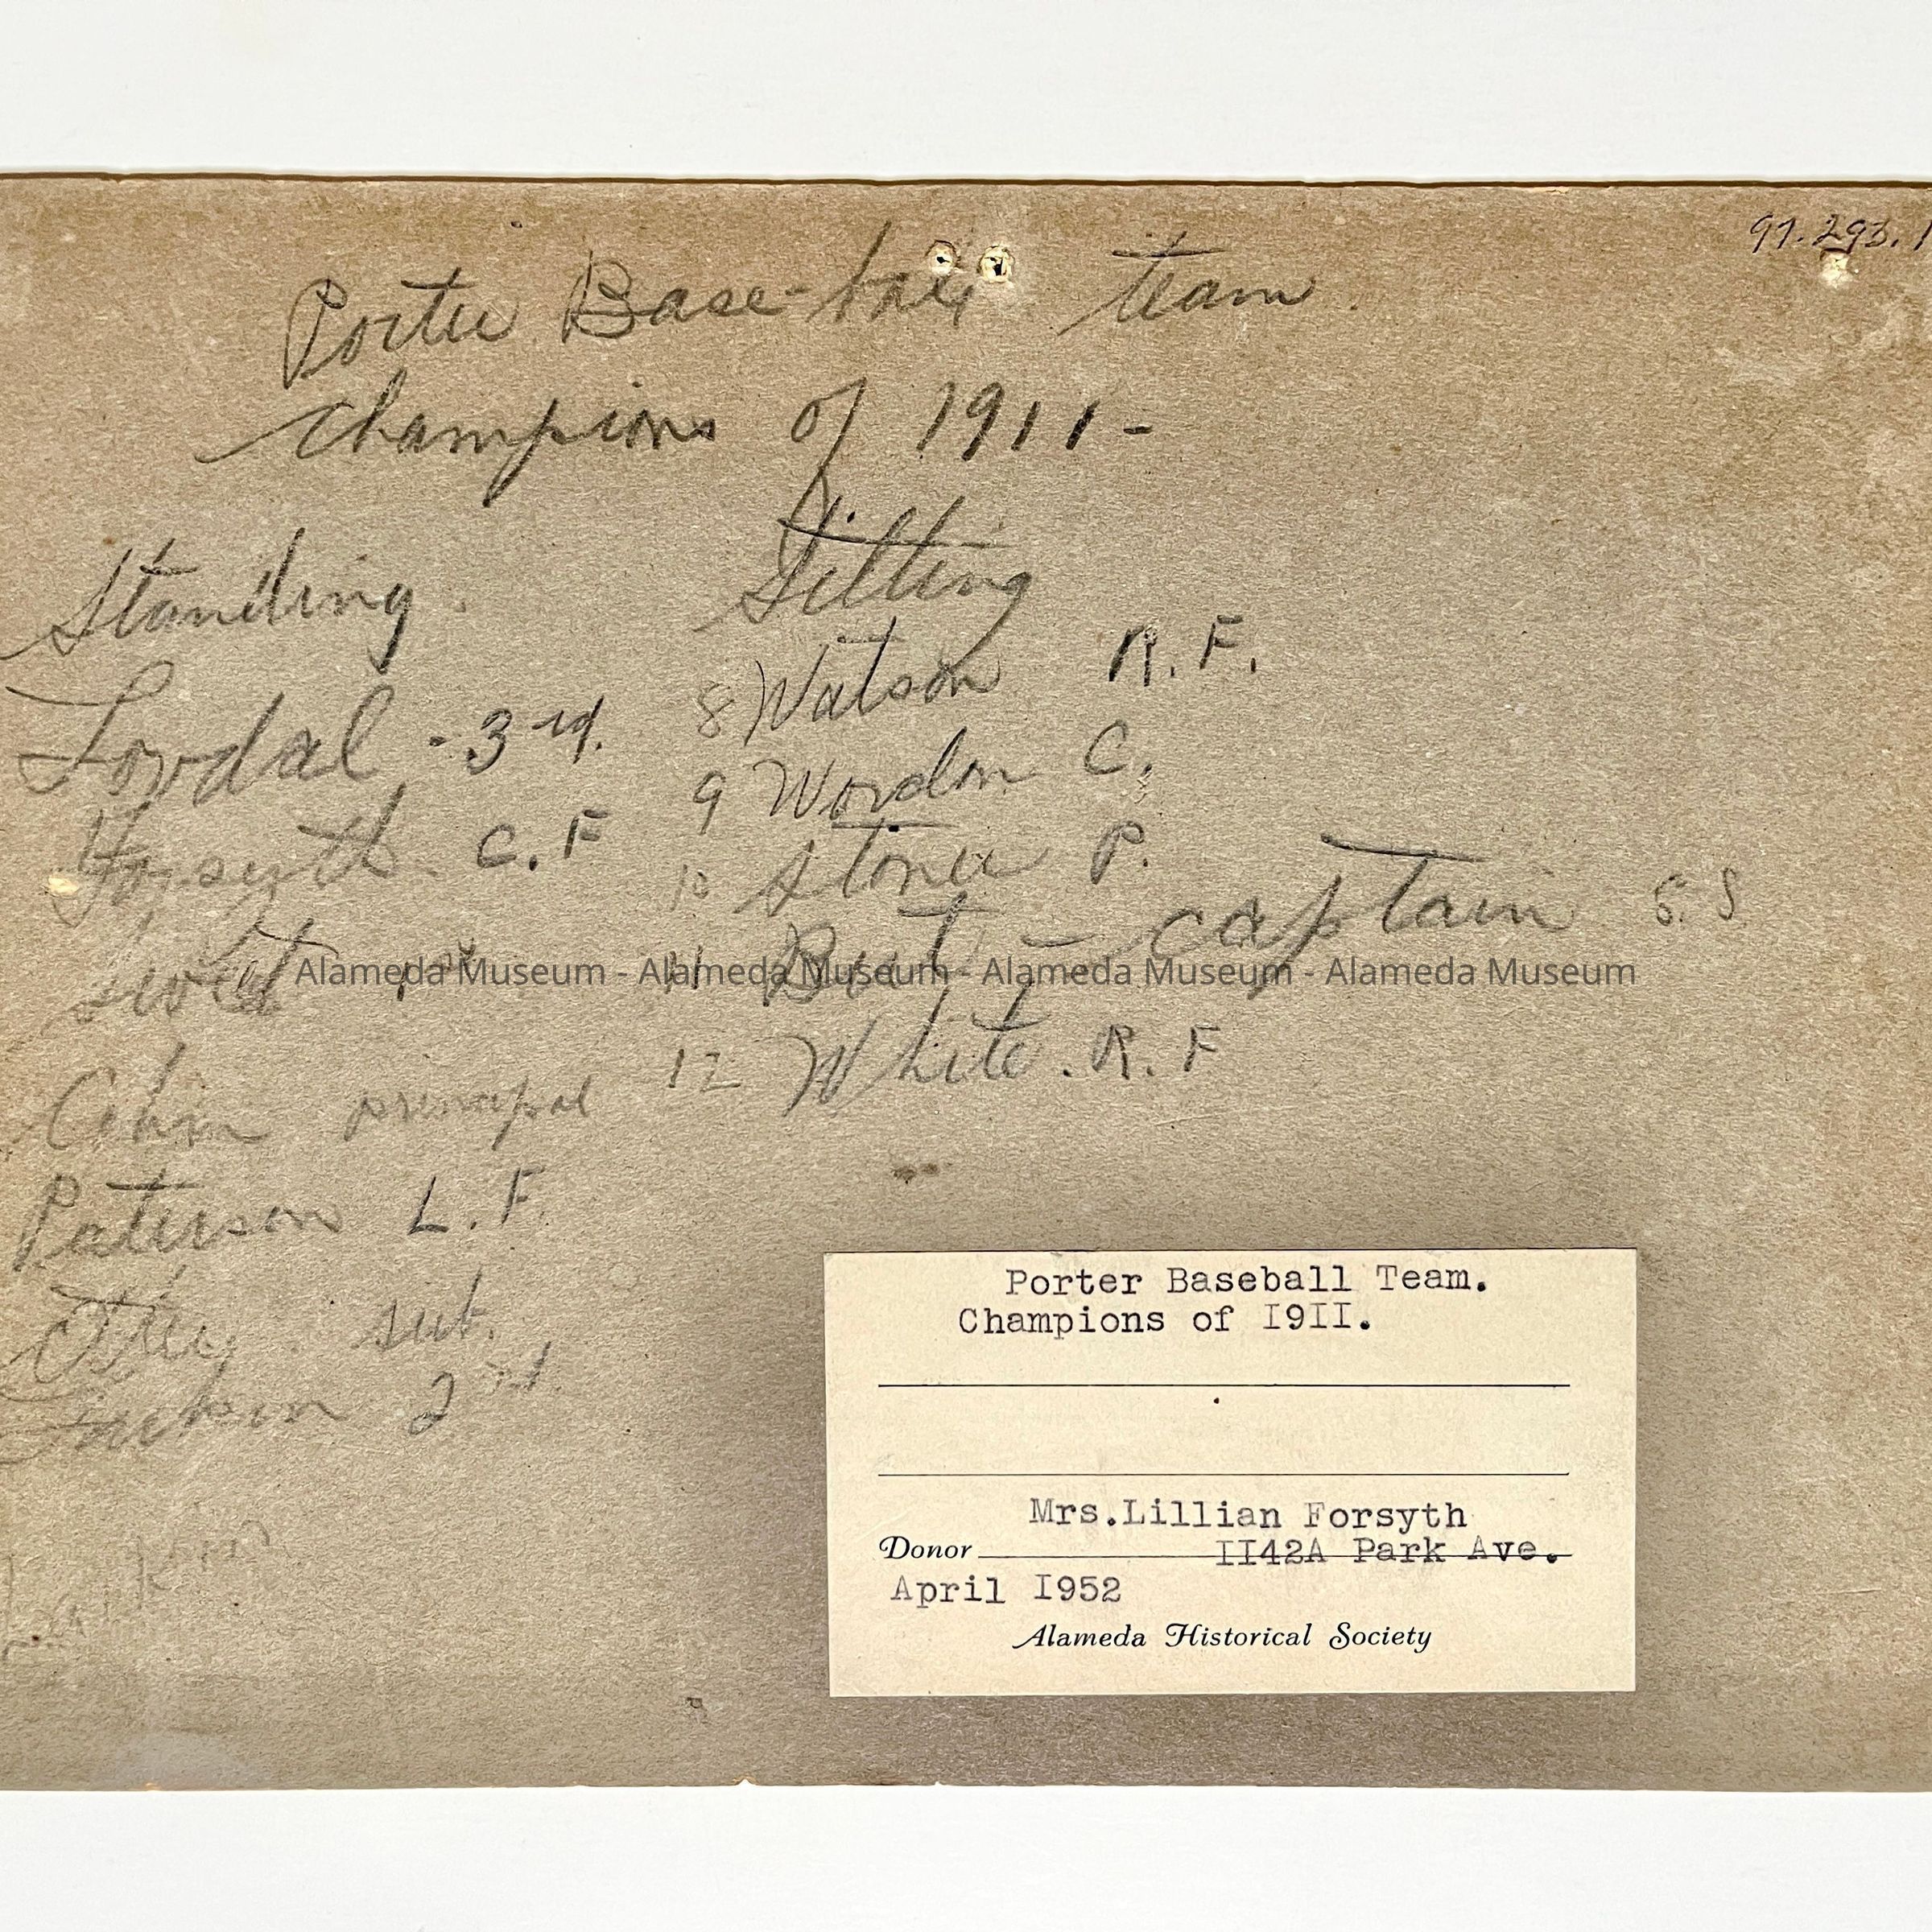 97.293.1
Porter Base-ball team
champions of 1911-
Standing
Lovdal - 3rd.
Forsyth C. F
1st
principal
Paterson L. F.
sub.
2nd.
Sitting
8 Watson R. F.
9 Wordon C.
10 Stone P.
11 - captain S. S
12 White. R. F
Alameda Museum - Alameda Museum - Alameda Museum - Alameda Museum
Porter Baseball Team.
Champions of I9II.
Mrs.Lillian Forsyth
Donor II42A Park Ave.
April I952
Alameda Historical Society